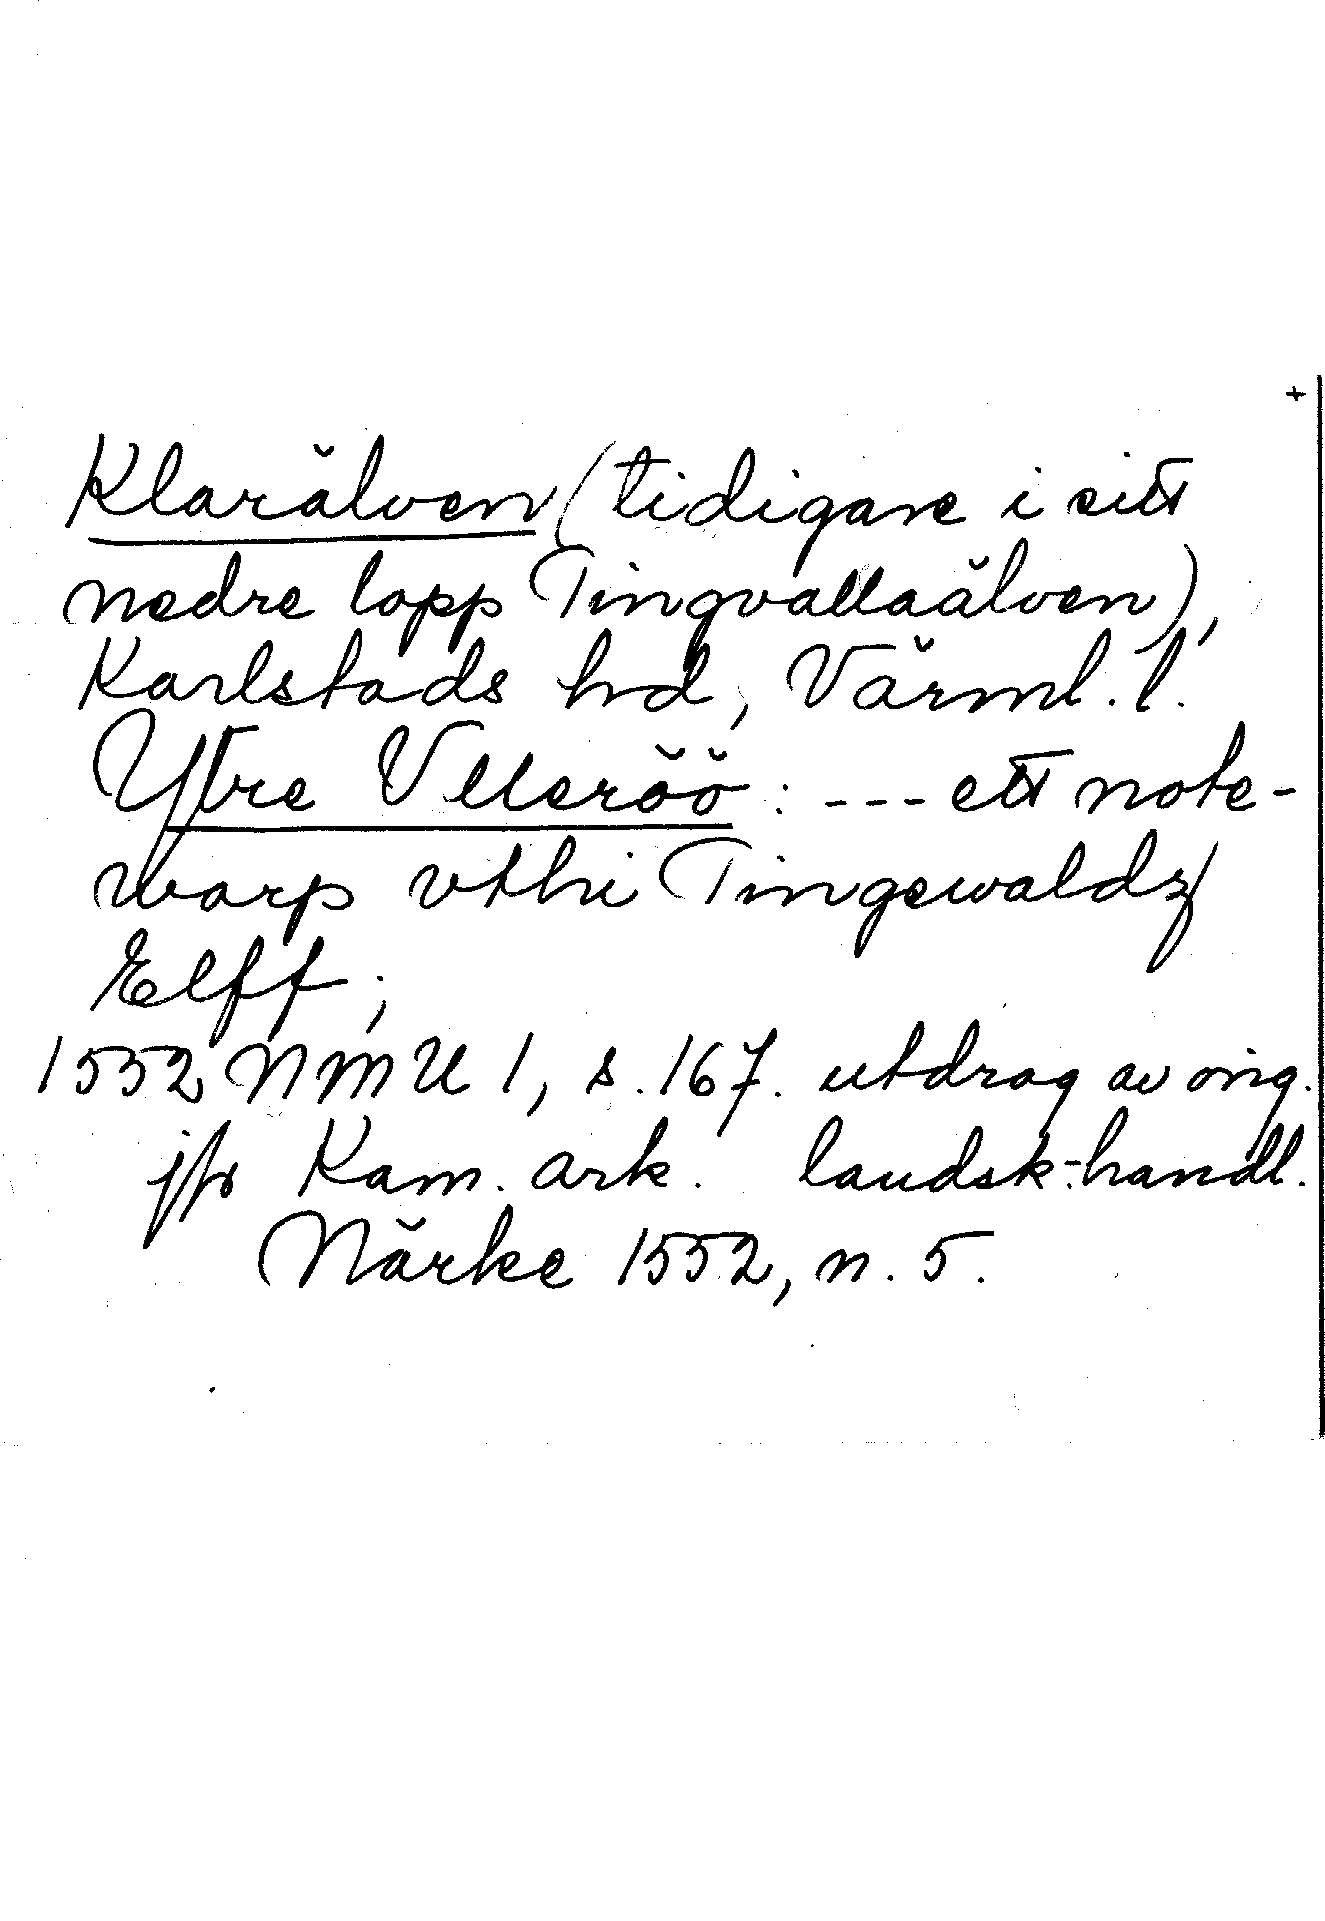 +
Klarälven (tidigare i sitt
nedre lopp Tingvallaälven),
Karlstads hd, Värml. l.
Ytre Vlleröö : --- ett note-
warp vthi Tingewaldz
Elff;
1552 NMU 1, s. 167. utdrag av orig.
jfr Kam. ark. landsk.-handl.
Närke 1552, n. 5.